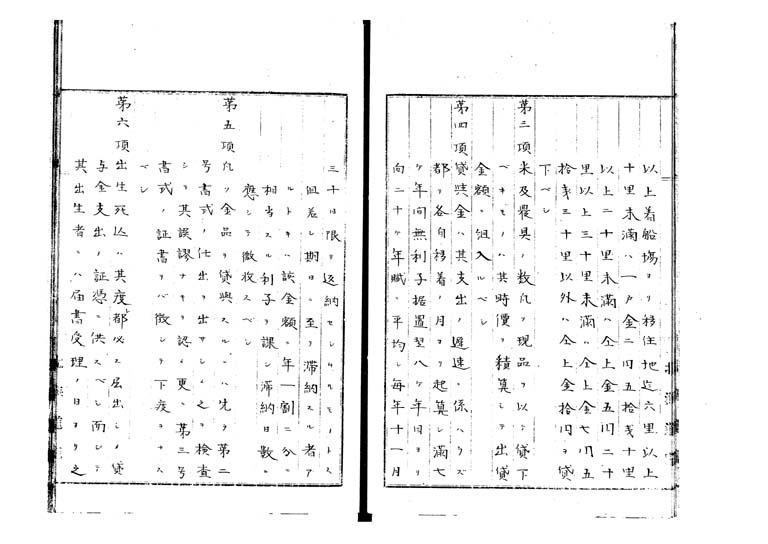 以上着船場ヨリ移住地迄六里以上
十里未満ハ一戸金二円五拾銭十里
以上二十里未満ハ仝上金五円二十
里以上三十里未満ハ仝上金七円五
拾銭三十里以外ハ仝上金拾円ヲ貸
下ベシ
第三項米及農具ノ数凡ソ現品ヲ以テ貸下
ベキモノハ其時價ヲ積算シテ出貸
金額ニ組入ルベシ
第四項貸與金ハ其支出ノ遅速ニ係ハラズ
都テ各自移着ノ月ヨリ起算シ満七
ケ年間無利子据置翌八ケ年目ヨリ
向二十ケ年賦ニ平均シ毎年十一月
三十日限リ返納セシムルモノトス
但若シ期日ニ至リ滞納スル者ア
ルトキハ該金額ニ年一割二分ニ
相当スル利子ヲ課シ滞納日数ニ
應シテ徴收スベシ
第五項凡ソ金品ヲ貸與スルニハ先ヅ第二
号書式ノ仕出ヲ出サシメ之ヲ検査
シテ其誤謬ナキヲ認メ更ニ第三号
書式ノ証書ヲ徴シテ下度ヲナス
ベシ
第六項出生死亡ハ其度都必ス屆出シメ貸
与金支出ノ証憑ニ供スベシ而シテ
其出生者ニハ屆書受理ノ日ヨリ之